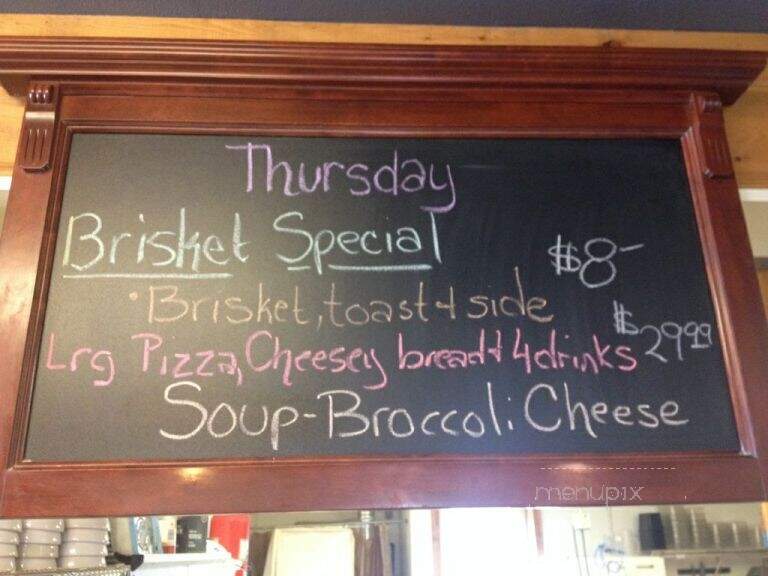 Thursday
Brisket Special $8-
• Brisket, toast + side
Lrg Pizza, Cheesey bread + 4 drinks $29.99
Soup - Broccoli Cheese
menupix